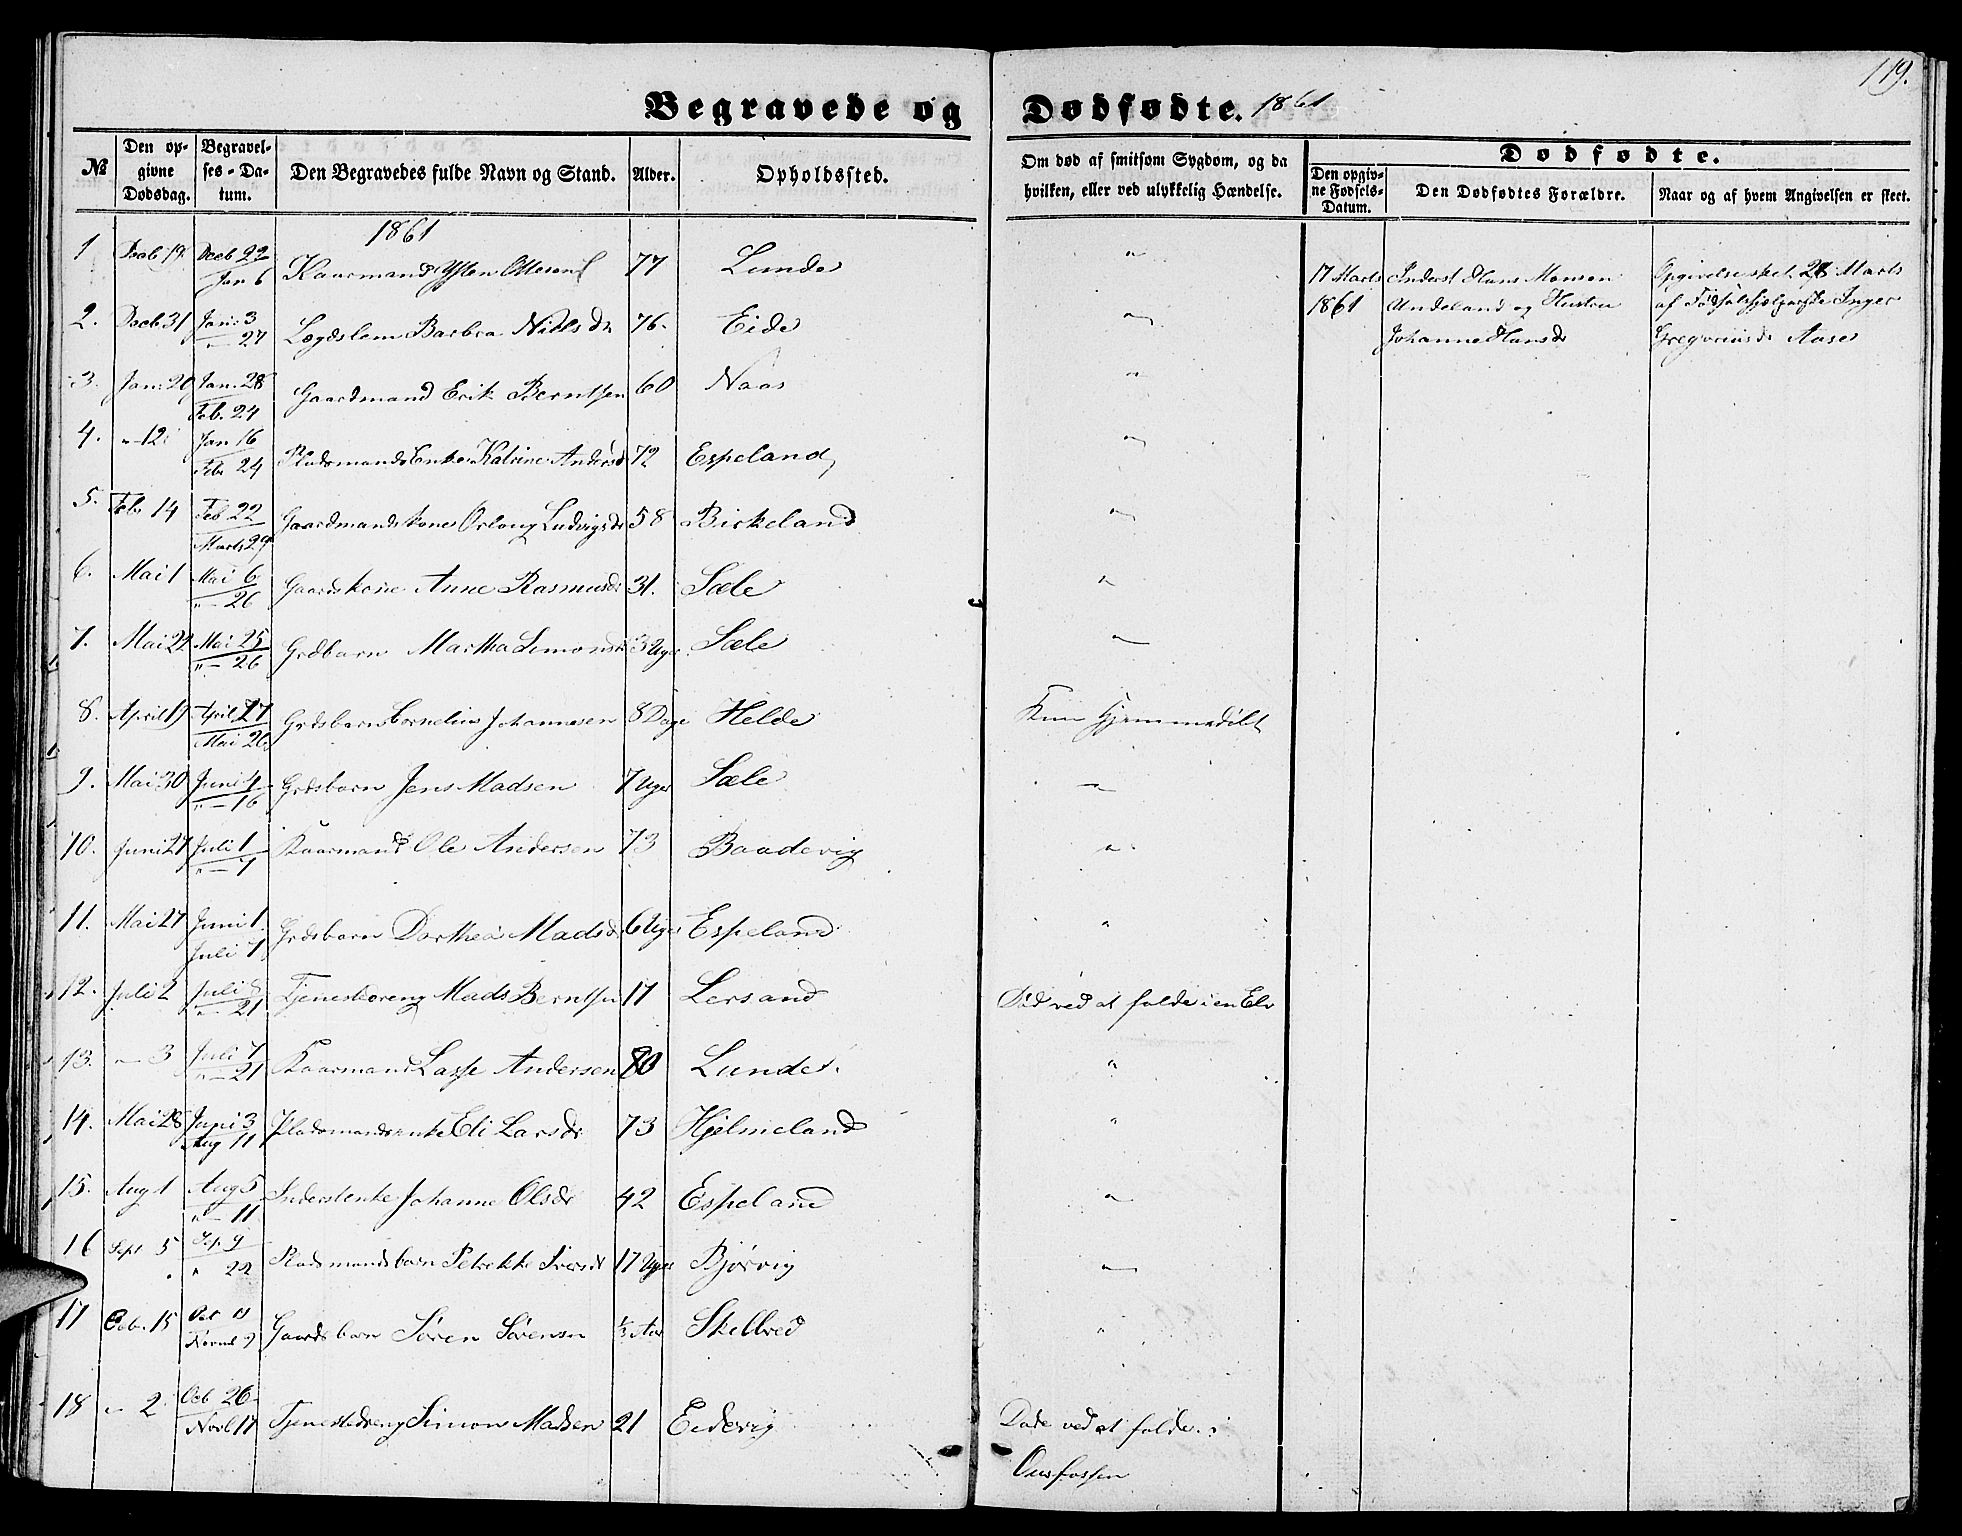 119.
Begravede og Dødfødte. 1861
№
Den opgivne Dødsdag.
Begravelses-Datum.
Den Begravedes fulde Navn og Stand.
Alder.
Opholdssted.
Om død af smitsom Sygdom, og da hvilken, eller ved ulykkelig Hændelse.
Dødfødte.
Den opgivne Fødsels-Datum.
Den Dødfødtes Forældre.
Naar og af hvem Angivelsen er skeet.
1861
1 Decb 19. Decb 22 Jan 6 Kaarmand Ottesen 77 Lunde "
2. Decb 31 Jan: 3 "— 27 Lægdslem Barbra Nilsdr 76. Eide "
3. Jan: 20 Jan. 28 Feb. 24 Gaardmand Erik Berntsen 60 Naas "
4. "—12 Jan 16 Feb 24 Pladsmandsenke Katrine Andersd 72 Espeland "
5. Feb 14 Feb 22 Marts 29 Gaardmandskone Ludvigsdr 58 Birkeland "
6. Mai 1 Mai 6 "— 26 Gaardskone Anne Rasmusdr 31. Sæle "
7. Mai 22 Mai 25 "— 26 Grdbarn Martha Simonsd 3 Uger Sæle "
8. April 19 April 27 Mai 26 Grdsbarn Cornelius Johannesen 8 Dage Helde Kun Hjemmedøbt
9. Mai 30 Juni 4 "— 16 Grdsbarn Jens Madsen 7 Uger Sæle "
10. Juni 27 Juli 1 "— 7 Kaarmand Ole Andersen 73 Baadevig "
11. Mai 27 Juni 1. Juli 7 Grdsbarn Dorthea Madsd 6 Uger Espeland "
12. Juli 2 Juli "— 21 Tjenestedreng Mads Berntsen 17 Lersand Død ved at falde i en Elv
13. "— 3 Juli 7 "— 21 Kaarmand Lasse Andersen 80 Lunde. "
14. Mai 28 Juni 3 Aug 11 Pladsmandsenke Eli Larsdr 73 Hjelmeland "
15. Aug 1 Aug 5 "— 11 Inderstenke Johanne Olsdr 42 Espeland "
16 Sept 5 Sep. 9 " 22 Pladsmandsbarn Petrikke Iversdr 17 Uger Bjørvig "
17 Octb. 15 Oct Novmb 9 Gaardsbarn Søren Sørensen 1/3 Aar Skellred "
18 "— 2 Octb 26 Novb 17 Tjenestedreng Simon Madsen 21 Eidevig Døde ved at falde i
Ousfossen
17 Marts Inderst Hans Monsen Opgivelse skeet 28 Marts
1861 Undeland og Hustru af Fødselshjelperske Inger
Johanne Hansdr Gregoriusdr Aase